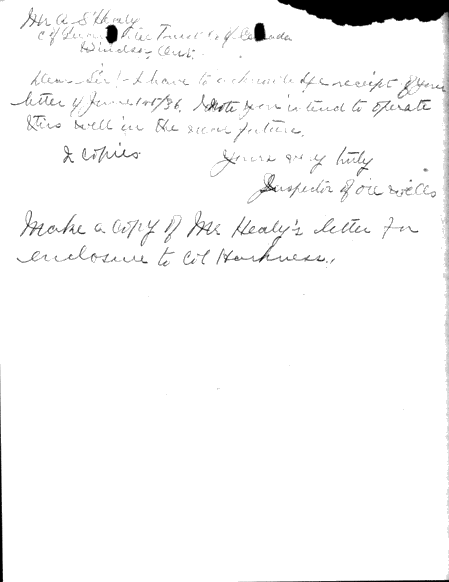 Mr A. S. Healy
c/o Trust Co of Canada
Windsor, Ont.
Dear Sir:- I have to acknowledge receipt of your
letter of June 1st/36. I note you intend to operate
this well in the near future.
2 copies Yours very truly
Inspector of oil wells
Make a copy of Mr Healy's letter for
enclosure to Col Harkness.